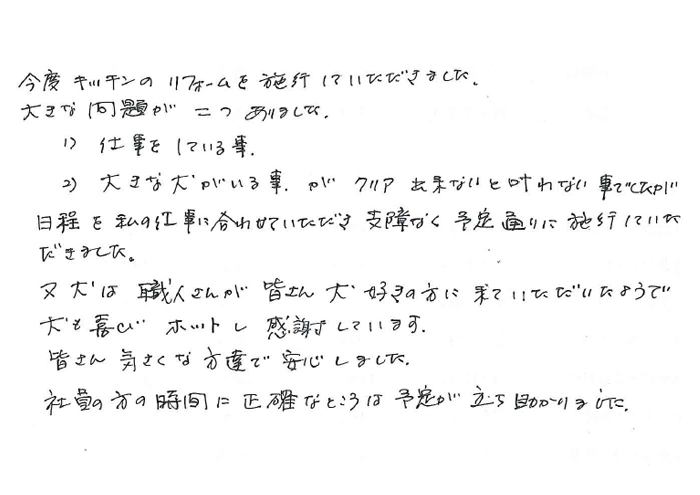 今度 キッチンの リフォームを 施行していただきました。
大きな 問題が 二つ ありました。
1) 仕事を している事.
2) 大きな犬がいる事. が クリア 出来ないと叶わない事でしたが
日程を 私の仕事に合わせていただき 支障なく 予定通りに 施行していた
だきました。
又 犬は 職人さんが 皆さん 犬好きの方に 来ていただいたようで
犬も喜び ホットし 感謝しています.
皆さん 気さくな 方達で 安心しました.
社員の方の時間に 正確なところは 予定が 立ち助かりました.